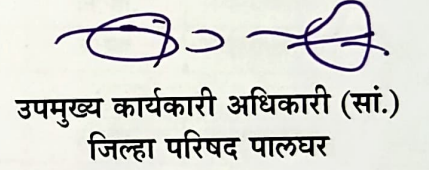 उपमुख्य कार्यकारी अधिकारी (सां.)
जिल्हा परिषद पालघर